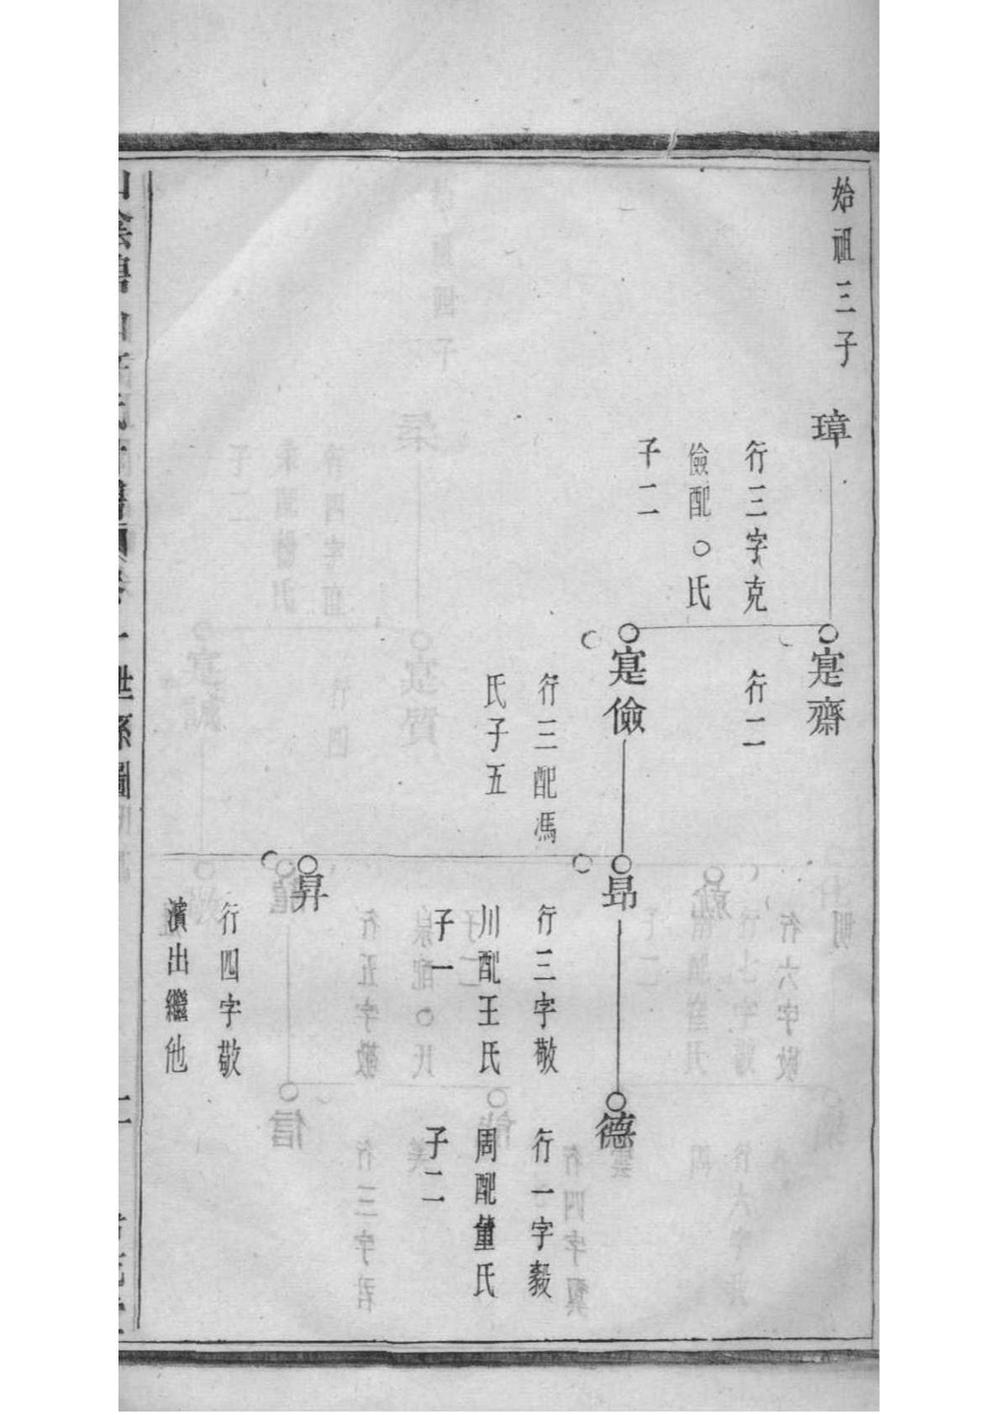 始祖三子
璋
行三字克
儉配○氏
子二
寔齋
行二
寔儉
行三配馮
氏子五
昻
行三字敬
川配王氏
子一
昇
行四字敬
濱出繼他
德
行一字毅
周配董氏
子二
世系圖